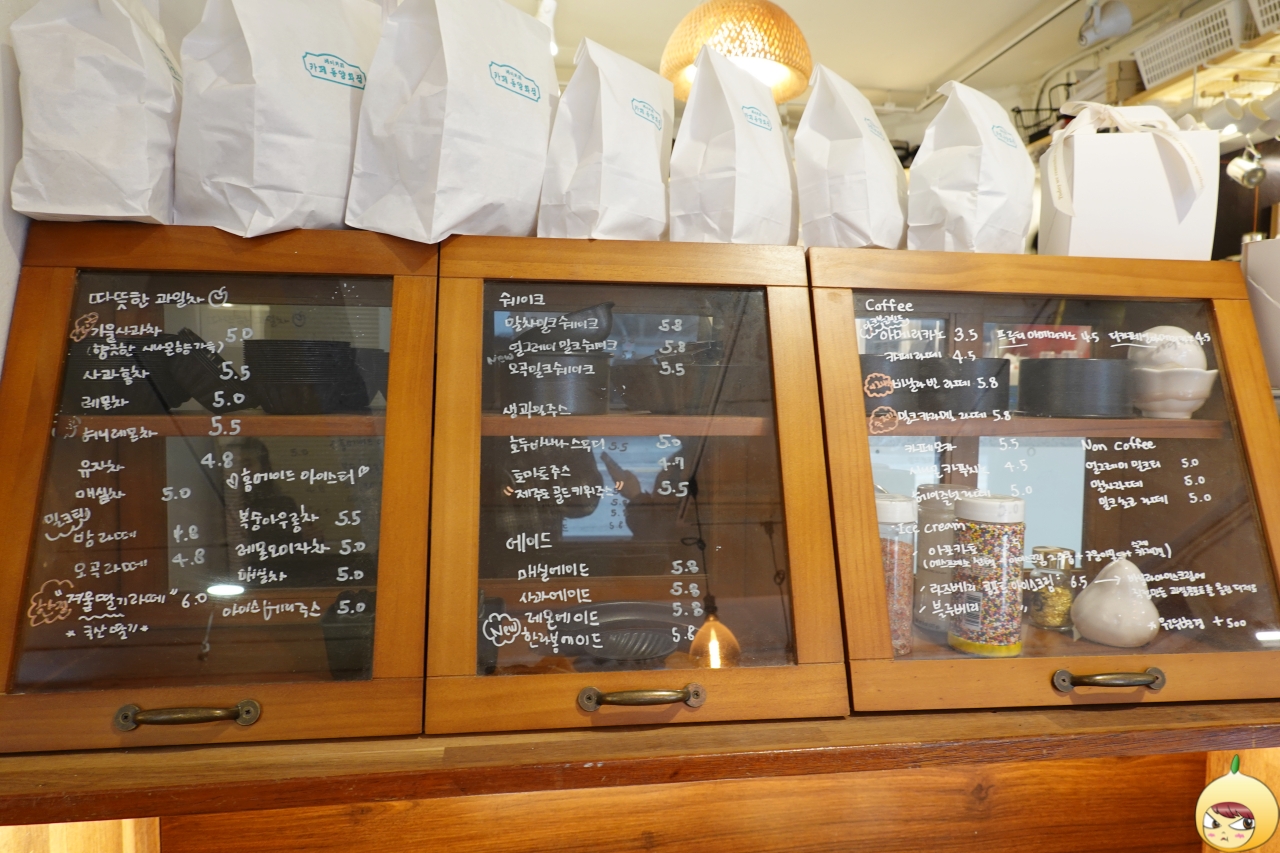 카페 동양화점
카페 동양화점
카페 동양화점
따뜻한 과일차
겨울사과차 5.0
(향긋한 시나몬향 가득)
사과홍차 5.5
레몬차 5.0
허니레몬차 5.5
유자차 4.8
매실차 5.0
밀크티
밤라떼 4.8
오곡라떼 4.8
"겨울딸기라떼" 6.0
* 국산 딸기 *
홈메이드 아이스티
복숭아우롱차 5.5
레몬오미자차 5.0
매실차 5.0
5.0
쉐이크
말차밀크쉐이크 5.8
얼그레이 밀크쉐이크 5.8
New 오곡밀크쉐이크 5.5
생과일주스
호두바나나스무디 5.5
토마토주스 4.7
"제주도 골드키위주스" 5.5
에이드
매실에이드 5.8
사과에이드 5.8
레몬에이드 5.8
New 한라봉에이드 5.8
Coffee
아메리카노 3.5
카페라떼 4.5
바닐라빈 라떼 5.8
밀크카라멜 라떼 5.8
카페모카 5.5
시나몬 카푸치노 4.5
헤이즐넛 라떼 5.0
Non Coffee
얼그레이 밀크티 5.0
말차라떼 5.0
밀크초코 라떼 5.0
Ice cream
아포카토
라즈베리 요거트 아이스크림 : 6.5
블루베리 "
+500